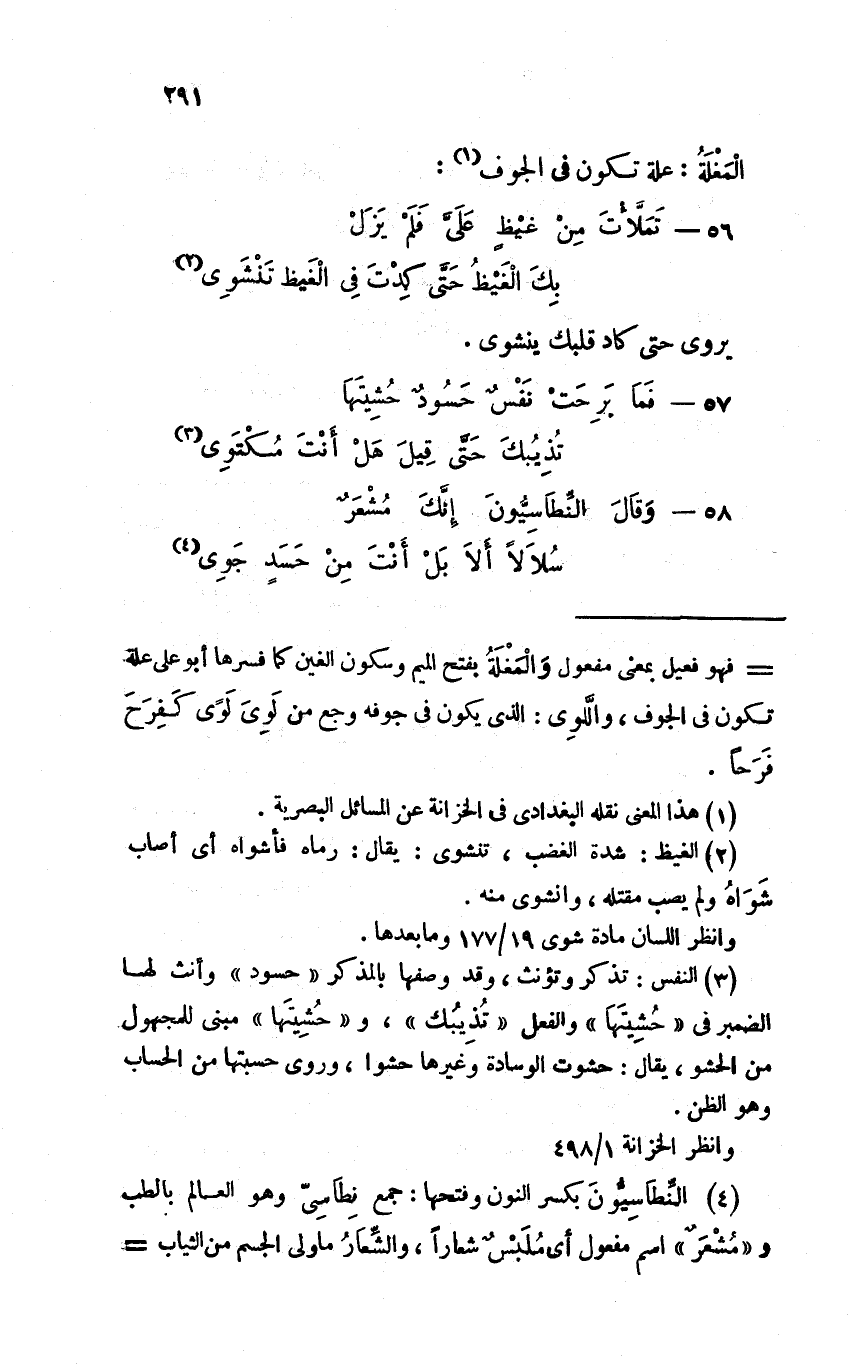 ٢٩١
الْمَغْلَةُ : علة تكون فى الجوف(١) :
٥٦ — تَمَلَّأْتَ مِنْ غيْظٍ عَلَىَّ فَلَمْ يَزَلْ
بِكَ الْغَيْظُ حَتَّى كِدْتَ فِى الْغَيظ تَنْشَوِى(٢)
يروى حتى كاد قلبك ينشوى .
٥٧ — فَمَا بَرِحَتْ نَفْسٌ حَسُودٌ حُشِيتَهَا
تُذِيبُكَ حَتَّى قِيلَ هَلْ أَنْتَ مُكْتَوِى(٣)
٥٨ — وَقَالَ النِّطَاسِيُّونَ إِنَّكَ مُشْعَرٌ
سُلاَلاً أَلاَ بَلْ أَنْتَ مِنْ حَسَدٍ جَوِى(٤)
= فهو فعيل بمعنى مفعول وَالْمَغْلَةُ بفتح الميم وسكون الغين كما فسرها أبو على علة
تكون فى الجوف ، واللَّوى : الذى يكون فى جوفه وجع من لَوِىَ لَوًى كَفِرَحَ
فَرَحاً .
(١) هذا المعنى نقله البغدادى فى الخزانة عن المسائل البصرية .
(٢) الغيظ : شدة الغضب ، تنشوى : يقال : رماه فأشواه أى أصاب
شَوَاهُ ولم يصب مقتله ، وانشوى منه .
وانظر اللسان مادة شوى ١٧٧/١٩ ومابعدها .
(٣) النفس : تذكر وتؤنث ، وقد وصفها بالمذكر « حسود » وأنث لها
الضمير فى « حُشِيتَهَا » والفعل « تُذِيبُك » ، و « حُشِيتَهَا » مبنى للمجهول
من الحشو ، يقال : حشوت الوسادة وغيرها حشوا ، وروى حسبتها من الحساب
وهو الظن .
وانظر الخزانة ٤٩٨/١
(٤) النِّطَاسِيُّونَ بكسر النون وفتحها : جمع نِطَاسِىّ وهو العالم بالطب
و « مُشْعَرٌ » اسم مفعول أى مُلَبَسٌ شعاراً ، والشِّعَارُ ماولى الجسم من الثياب =